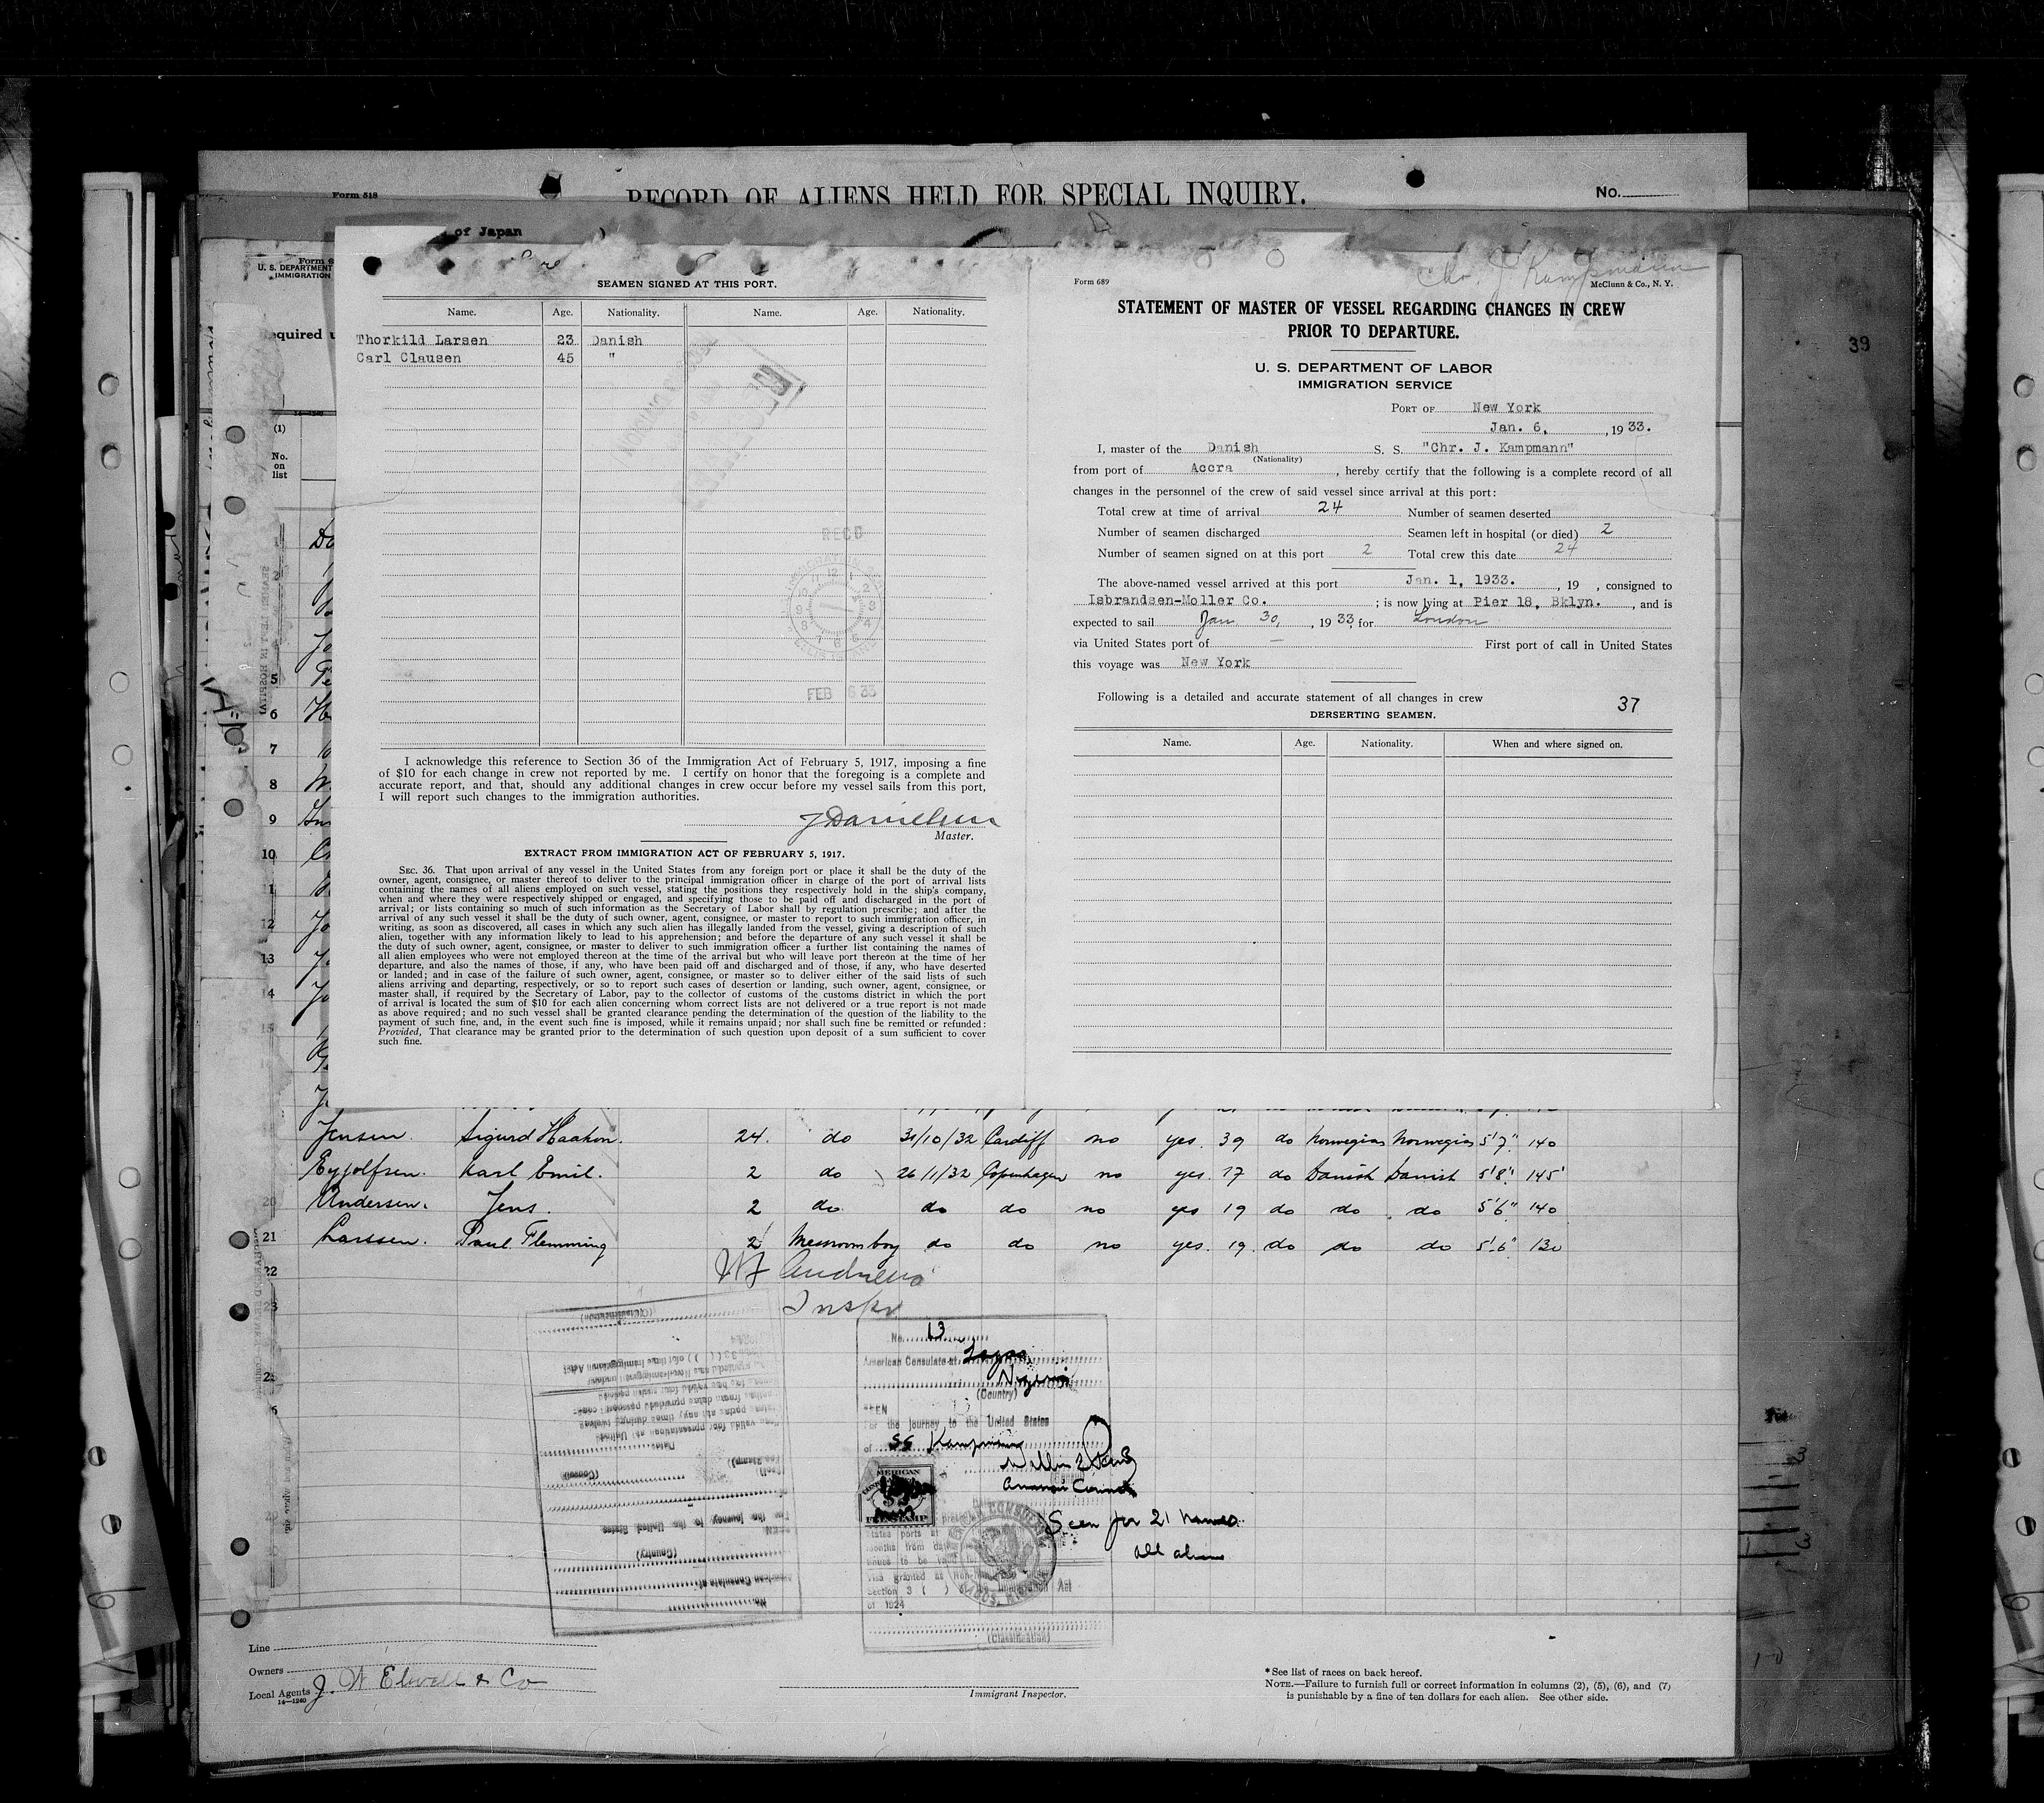 Form 518
RECORD OF ALIENS HELD FOR SPECIAL INQUIRY.
No.
of Japan )
U. S. DEPARTMENT
IMMIGRATION
equired u
(1)
No.
on
list
39
SEAMEN SIGNED AT THIS PORT.
Name. Age. Nationality. Name. Age. Nationality.
Thorkild Larsen 23 Danish
Carl Clausen 45 "
RECD
FEB 6 33
I acknowledge this reference to Section 36 of the Immigration Act of February 5, 1917, imposing a fine
of $10 for each change in crew not reported by me. I certify on honor that the foregoing is a complete and
accurate report, and that, should any additional changes in crew occur before my vessel sails from this port,
I will report such changes to the immigration authorities.
J Danielsen
Master.
EXTRACT FROM IMMIGRATION ACT OF FEBRUARY 5, 1917.
SEC. 36. That upon arrival of any vessel in the United States from any foreign port or place it shall be the duty of the
owner, agent, consignee, or master thereof to deliver to the principal immigration officer in charge of the port of arrival lists
containing the names of all aliens employed on such vessel, stating the positions they respectively hold in the ship's company,
when and where they were respectively shipped or engaged, and specifying those to be paid off and discharged in the port of
arrival; or lists containing so much of such information as the Secretary of Labor shall by regulation prescribe; and after the
arrival of any such vessel it shall be the duty of such owner, agent, consignee, or master to report to such immigration officer, in
writing, as soon as discovered, all cases in which any such alien has illegally landed from the vessel, giving a description of such
alien, together with any information likely to lead to his apprehension; and before the departure of any such vessel it shall be
the duty of such owner, agent, consignee, or master to deliver to such immigration officer a further list containing the names of
all alien employees who were not employed thereon at the time of the arrival but who will leave port thereon at the time of her
departure, and also the names of those, if any, who have been paid off and discharged and of those, if any, who have deserted
or landed; and in case of the failure of such owner, agent, consignee, or master so to deliver either of the said lists of such
aliens arriving and departing, respectively, or so to report such cases of desertion or landing, such owner, agent, consignee, or
master shall, if required by the Secretary of Labor, pay to the collector of customs of the customs district in which the port
of arrival is located the sum of $10 for each alien concerning whom correct lists are not delivered or a true report is not made
as above required; and no such vessel shall be granted clearance pending the determination of the question of the liability to the
payment of such fine, and, in the event such fine is imposed, while it remains unpaid; nor shall such fine be remitted or refunded:
Provided, That clearance may be granted prior to the determination of such question upon deposit of a sum sufficient to cover
such fine.
Chr. J Kampmann
Form 689
McClunn & Co., N. Y.
STATEMENT OF MASTER OF VESSEL REGARDING CHANGES IN CREW
PRIOR TO DEPARTURE.
U. S. DEPARTMENT OF LABOR
IMMIGRATION SERVICE
PORT OF New York
Jan. 6, , 19 33.
I, master of the Danish S. S. "Chr. J. Kampmann"
(Nationality)
from port of Accra , hereby certify that the following is a complete record of all
changes in the personnel of the crew of said vessel since arrival at this port:
Total crew at time of arrival 24 Number of seamen deserted
Number of seamen discharged Seamen left in hospital (or died) 2
Number of seamen signed on at this port 2 Total crew this date 24
The above-named vessel arrived at this port Jan. 1, 1933. , 19 , consigned to
Isbrandsen-Moller Co. ; is now lying at Pier 18, Bklyn. , and is
expected to sail Jan 30, , 19 33, for London
via United States port of — First port of call in United States
this voyage was New York
Following is a detailed and accurate statement of all changes in crew 37
DERSERTING SEAMEN.
Name. Age. Nationality. When and where signed on.
1
2
5
6
7
8
9
10
11
12
13
14
15
Jensen. Sigurd Haakon. 24. do 31/10/32 Cardiff no yes. 39 do Norwegian Norwegian 5'7" 140
Eyjolfsen. Karl Emil. 2 do 26/1/32 Copenhagen no yes. 17 do Danish Danish 5'8" 145
20 Andersen. Jens. 2 do do do no yes 19 do do do 5'6" 140
21 Larssen. Paul Flemming 2 Messroom boy do do no yes. 19. do do do 5'6" 130
22 W J Andrews
23 Inspr
No. 13
American Consulate at Lagos
Nigeria
(Country)
SEEN
For the journey to the United States
of SS Kampmann
AMERICAN
FEE STAMP
Seen for 21 names
all aliens
Section 3 ( ) Immigration Act
of 1924
(Classification)
Line
Owners
Local Agents J. W Elwell & Co
14—1240
Immigrant Inspector.
* See list of races on back hereof.
NOTE.—Failure to furnish full or correct information in columns (2), (5), (6), and (7)
is punishable by a fine of ten dollars for each alien. See other side.